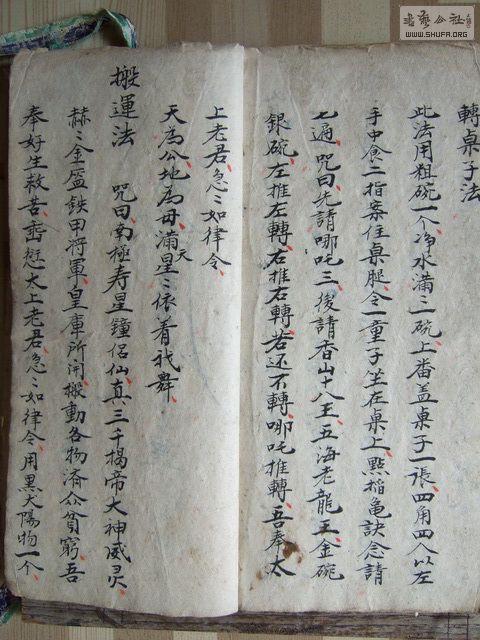 轉桌子法
此法用粗碗一个净水满三碗上番盖桌子一張四角四人以左
手中食二指案住桌腿令一童子坐在桌上點稲亀訣念請
七遍咒曰先請哪吒三後請香山十八王五海老龍王金碗
銀碗左推左轉右推右轉若还不轉哪吒推轉吾奉太
上老君急〻如律令
天為公地為母满天星〻依看我舞
搬運法 咒曰南極寿星鐘侣仙真三千揭帝大神威灵
赫〻金盔鉄甲将軍皇庫所開搬動各物済公貧窮吾
奉好生救苦太上老君急〻如律令用黑犬陽物一个
書法公社
WWW.SHUFA.ORG